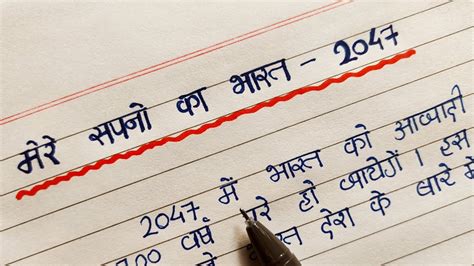 मेरे सपनो का भारत - 2047
2047 में भारत को आज़ादी
100 वर्ष पूरे हो जायेगें । इस
भारत देश के बारे में